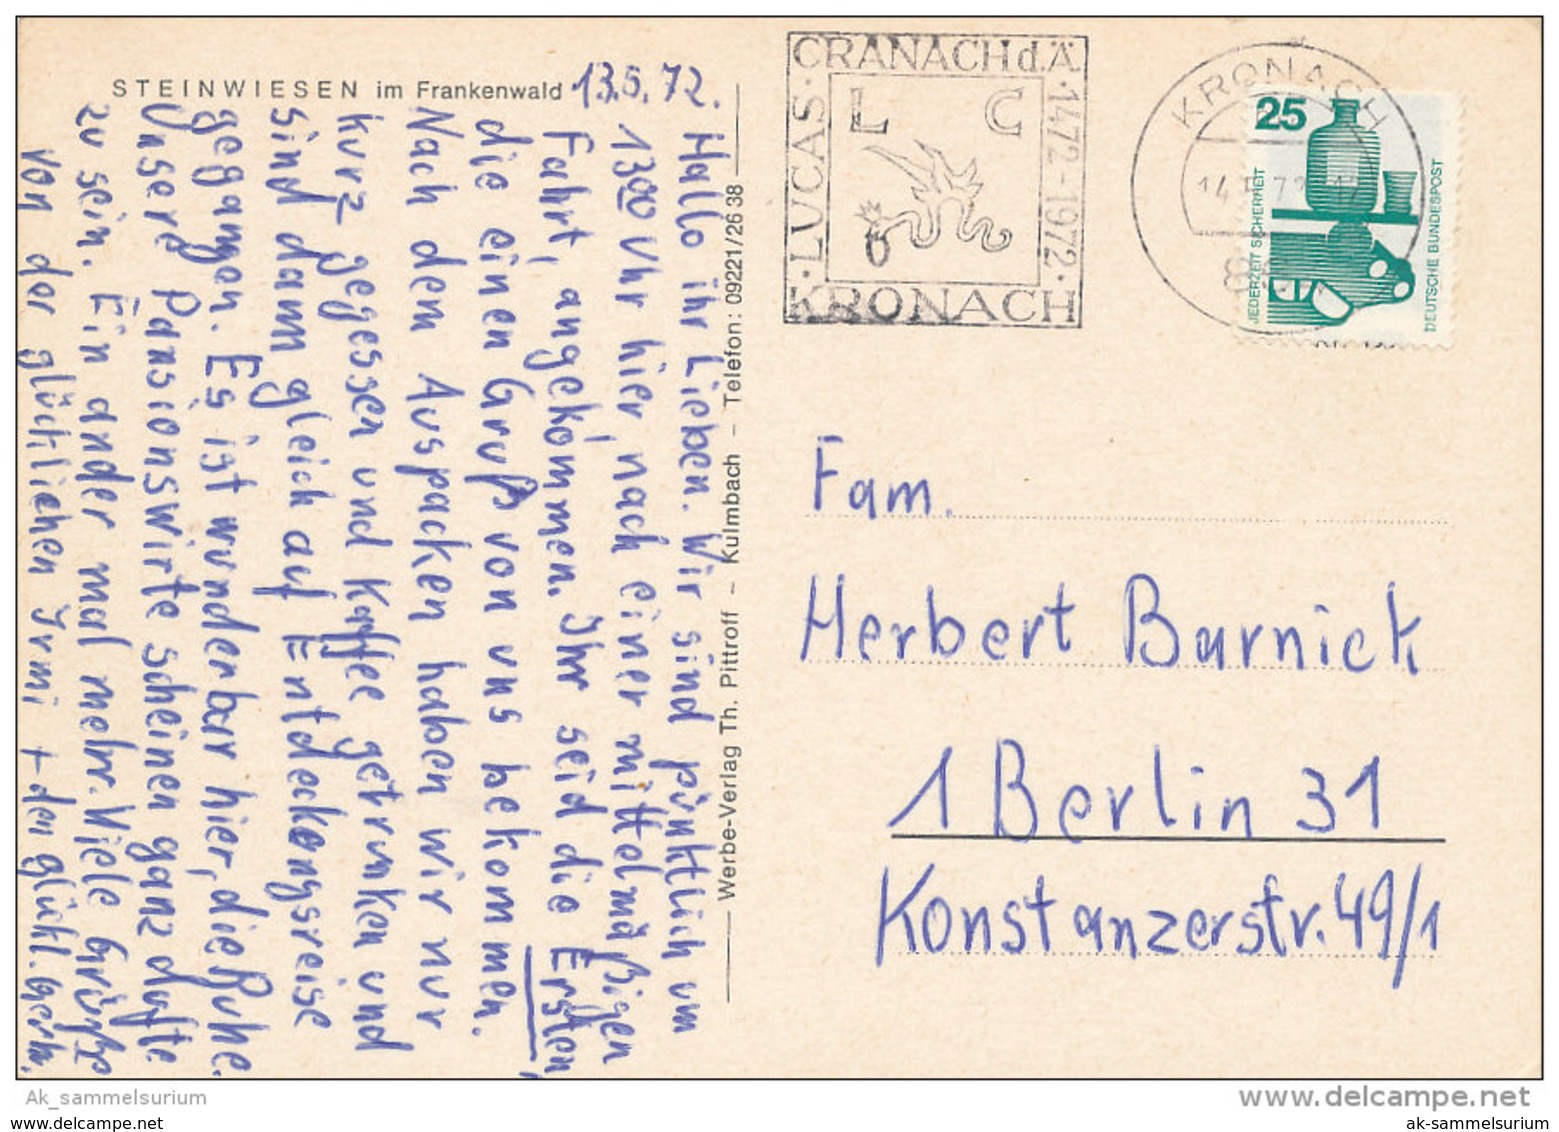 STEINWIESEN im Frankenwald
13.5.72.
Hallo ihr Lieben. Wir sind pünktlich um
1300 Uhr hier, nach einer mittelmäßigen
Fahrt, angekommen. Ihr seid die Ersten,
die einen Gruß von uns bekommen.
Nach dem Auspacken haben wir nur
kurz gegessen und Kaffee getrunken und
sind dann gleich auf Entdeckungsreise
gegangen. Es ist wunderbar hier, die Ruhe.
Unsere Pansionswirte scheinen ganz dufte
zu sein. Ein ander mal mehr. Viele Grüße
von der glücklichen Irmi + den glückl.
Werbe-Verlag Th. Pittroff – Kulmbach – Telefon: 09221/2638
LUCAS · CRANACH d.Ä. · 1472-1972 ·
KRONACH
L C
KRONACH
25
JEDERZEIT SICHERHEIT
DEUTSCHE BUNDESPOST
Fam.
Herbert Barnick
1 Berlin 31
Konstanzerstr. 49/1
Ak_sammelsurium
www.delcampe.net
www.delcampe.net
ak-sammelsurium